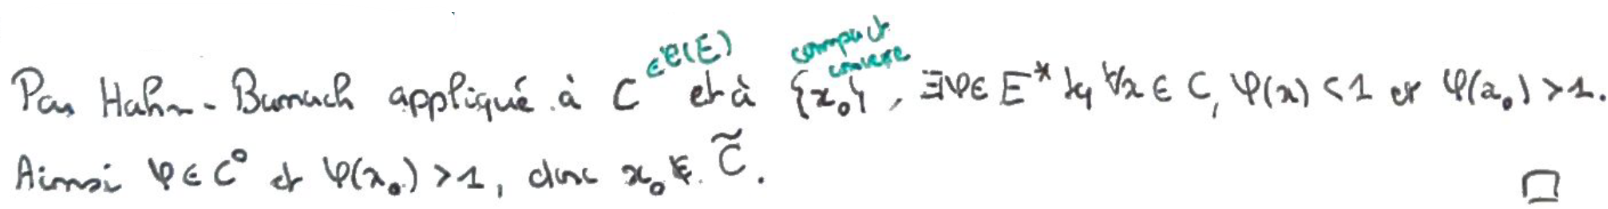 Par Hahn-Banach appliqué à C ∈ 𝒞(E) et à {x₀} compact convexe, ∃φ ∈ E* tq ∀x ∈ C, φ(x) < 1 et φ(x₀) > 1.
Ainsi φ ∈ C° et φ(x₀) > 1, donc x₀ ∉ C̃. □